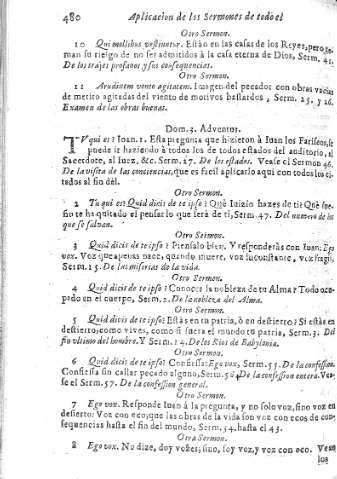 480 Aplicacion de los Sermones de todo el
Otro Sermon.
10 Qui mollibus vestiuntur. Estàn en las casas de los Reyes, pero to-
man su riesgo de no ser admitidos à la casa eterna de Dios, Serm. 41.
De los trajes profanos y sus consequencias.
Otro Sermon.
11 Arudinem vento agitatem. Imagen del pecador con obras varias
de merito agitadas del viento de motivos bastardos, Serm. 25. y 26.
Examen de las obras buenas.
Dom. 3. Adventos.
1 TV qui es? Ioan. 1. Esta pregunta que hizieron à Iuan los Fariseos, se
puede ir haziendo à todos los de todos estados del auditorio, al
Sacerdote, al Iuez, &c. Serm. 27. De los estados. Vease el Sermon 46.
De la visita de las conciencias, que es facil aplicarlo aqui con todos los ci-
tados al fin dèl.
Otro Sermon.
2 Tu qui es? Quid dicis de te ipso? Què Iuizio hazes de ti? Què sue-
ño te ha quitado el pensar lo que serà de ti, Serm. 47. Del numero de los
que se salvan.
Otro Sermon.
3 Quid dicis de te ipso? Piensalo bien. Y responderàs con Iuan: Ego
vox. Voz que apenas nace, quando muere, voz inconstante, voz fragil,
Serm. 15. De las miserias de la vida.
Otro Sermon.
4 Quid dicis de te ipso? Conoces la nobleza de tu Alma? Todo ocu-
pado en el cuerpo, Serm. 2. De la nobleza del Alma.
Otro Sermon.
5 Quid dicis de te ipso? Estàs en tu patria, ò en destierro? Si estàs en
destierro, como vives, como si fuera el mundo tu patria, Serm. 3. Del
fin ultimo del hombre. Y Serm. 14. De los Rios de Babylonia.
Otro Sermon.
6 Quid dicis de te ipso? Confiessa: Ego vox, Serm. 55. De la confession.
Confiessa sin callar pecado alguno, Serm. 56. De la confession entera. Vea-
se el Serm. 57. De la confession general.
Otro Sermon.
7 Ego vox. Responde Iuan à la pregunta, y no solo voz, sino voz en
desierto: Voz con eco; que las obras de la vida son voz con ecos de con-
sequencias hasta el fin del mundo, Serm. 34. hasta el 43.
Otro Sermon.
8 Ego vox. No dize, doy vozes; sino, soy voz, y voz con eco. Vean
los